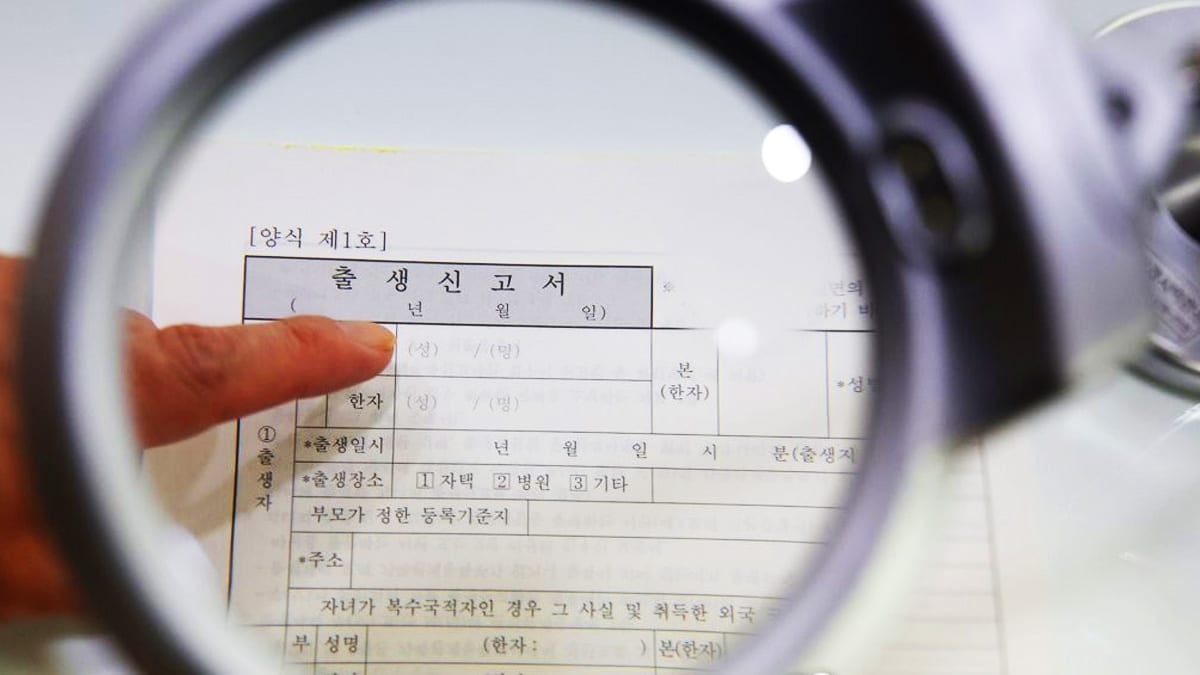 [양식 제1호]
출 생 신 고 서
( 년 월 일)
※ 면의
하기 바
(성) / (명)
본
(한자)
*성
한자 (성) / (명)
① 출생자
*출생일시 년 월 일 시 분(출생지
*출생장소 1 자택 2 병원 3 기타
부모가 정한 등록기준지
*주소
자녀가 복수국적자인 경우 그 사실 및 취득한 외국
부 성명 (한자: ) 본(한자)